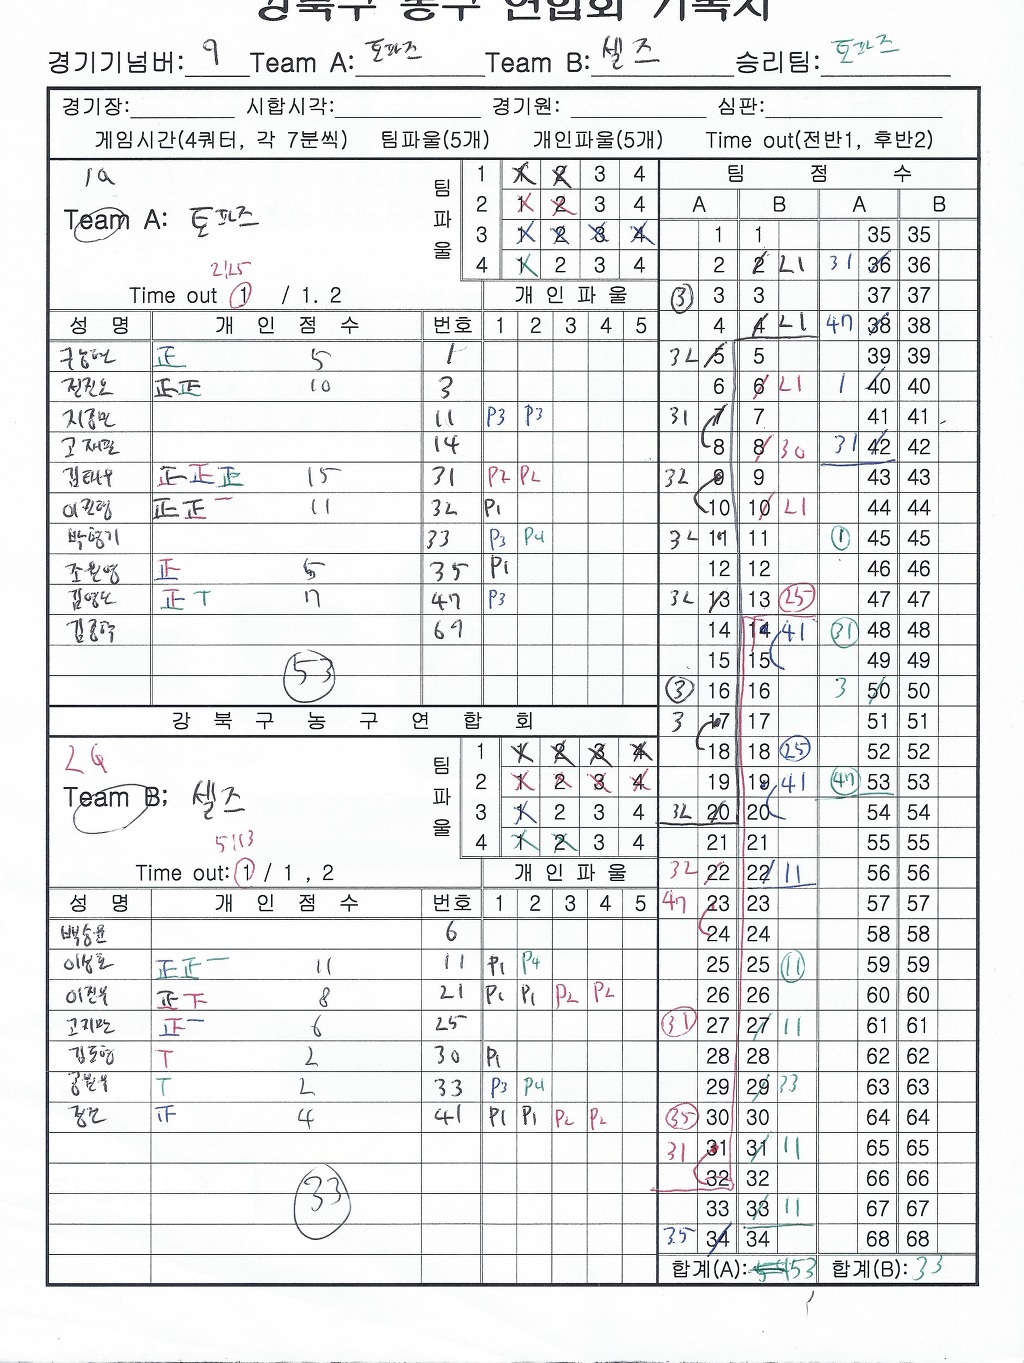 강북구 농구 연합회 기록지
경기기넘버: 9 Team A: 토파즈 Team B: 셀즈 승리팀: 토파즈
경기장: 시합시각: 경기원: 심판:
게임시간(4쿼터, 각 7분씩) 팀파울(5개) 개인파울(5개) Time out(전반1, 후반2)
Team A: 토파즈
팀 파 울
1 1 2 3 4
2 1 2 3 4
3 1 2 3 4
4 1 2 3 4
2:25
Time out 1 / 1. 2 개 인 파 울
성 명 개 인 점 수 번호 1 2 3 4 5
正 5 1
正正 10 3
11 P3 P3
고재필 14
김태우 正正正 15 31 P2 P2
正正一 11 32 P1
33 P3 P4
조원영 正 5 35 P1
正丅 7 47 P3
69
53
강 북 구 농 구 연 합 회
2Q
Team B; 셀즈
팀 파 울
1 1 2 3 4
2 1 2 3 4
3 1 2 3 4
4 1 2 3 4
5:13
Time out: 1 / 1 , 2 개 인 파 울
성 명 개 인 점 수 번호 1 2 3 4 5
백승윤 6
正正一 11 11 P1 P4
正下 8 21 P1 P1 P2 P2
고지만 正一 6 25
丅 2 30 P1
丅 2 33 P3 P4
4 41 P1 P1 P2 P2
33
팀 점 수
A B A B
1 1 35 35
2 2 21 31 36 36
3 3 3 37 37
4 4 21 47 38 38
32 5 5 39 39
6 6 21 1 40 40
31 7 7 41 41
8 8 30 31 42 42
32 9 9 43 43
10 10 21 44 44
32 11 11 1 45 45
12 12 46 46
32 13 13 25 47 47
14 14 41 31 48 48
15 15 49 49
3 16 16 3 50 50
3 17 17 51 51
18 18 25 52 52
19 19 41 47 53 53
32 20 20 54 54
21 21 55 55
32 22 22 11 56 56
47 23 23 57 57
24 24 58 58
25 25 11 59 59
26 26 60 60
31 27 27 11 61 61
28 28 62 62
29 29 33 63 63
35 30 30 64 64
31 31 31 11 65 65
32 32 66 66
33 33 11 67 67
35 34 34 68 68
합계(A): 53 합계(B): 33